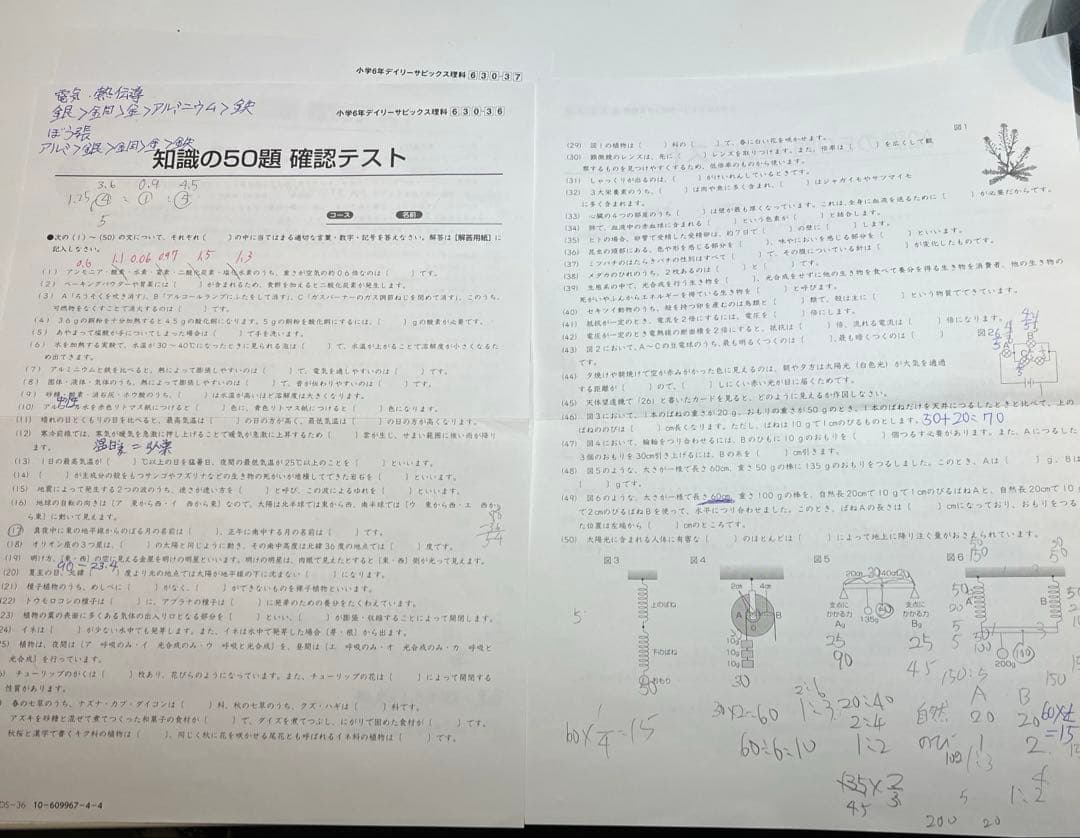 小学6年デイリーサピックス理科 630-37
小学6年デイリーサピックス理科 630-36
電気・熱伝導
銀>銅>金>アルミニウム>鉄
ぼう張
アルミ>銀>銅>金>鉄
知識の50題 確認テスト
3.6 0.9 4.5
1.25 ④ : ① : ⑤
5
コース 名前
●次の(1)〜(50)の文について、それぞれ( )の中に当てはまる適切な言葉・数字・記号を答えなさい。解答は【解答用紙】に
記入しなさい。
0.6 1.1 0.06 0.97 1.5 1.3
(1) アンモニア・酸素・水素・窒素・二酸化炭素・塩化水素のうち、重さが空気の約0.6倍なのは( )です。
(2) ベーキングパウダーや胃薬には( )が含まれるため、食酢を加えると二酸化炭素が発生します。
(3) A「ろうそくを吹き消す」、B「アルコールランプにふたをして消す」、C「ガスバーナーのガス調節ねじを閉めて消す」、このうち、
可燃物をなくすことで消火するのは( )です。
(4) 3.6gの銅粉を十分加熱すると4.5gの酸化銅になります。5gの銅粉を酸化銅にするには、( )gの酸素が必要です。
(5) あやまって塩酸が手についてしまった場合は( )で手を洗います。
(6) 水を加熱する実験で、水温が30〜40℃になったときに見られる泡は( )で、水温が上がることで溶解度が小さくなるた
め出てきます。
(7) アルミニウムと鉄を比べると、熱によって膨張しやすいのは( )で、電気を通しやすいのは( )です。
(8) 固体・液体・気体のうち、熱によって膨張しやすいのは( )で、音が伝わりやすいのは( )です。
(9) 砂糖・酸素・消石灰・ホウ酸のうち、( )は水温が高いほど溶解度は大きくなります。
(10) アルカリ水を赤色リトマス紙につけると( )色に、青色リトマス紙につけると( )色になります。
(11) 晴れの日とくもりの日を比べると、最高気温は( )の日の方が高く、最低気温は( )の日の方が高くなります。
(12) 寒冷前線では、寒気が暖気を急激に押し上げることで暖気が急激に上昇するため( )雲が生じ、せまい範囲に強い雨が降り
ます。
(13) 1日の最高気温が( )℃以上の日を猛暑日、夜間の最低気温が25℃以上のことを( )といいます。
(14) ( )が主成分の殻をもつサンゴやフズリナなどの生き物の死がいが堆積してできた岩石を( )といいます。
(15) 地震によって発生する2つの波のうち、速さが速い方を( )と呼び、この波によるゆれを( )といいます。
(16) 地球の自転の向きは(ア 東から西・イ 西から東)なので、太陽は北半球では東から西、南半球では(ウ 東から西・エ 西か
ら東)に動いて見えます。
(17) 真夜中に東の地平線からのぼる月の名前は( )、正午に南中する月の名前は( )です。
(18) オリオン座の3つ星は、( )の太陽と同じように動き、その南中高度は北緯36度の地点では( )度です。
90
-36
54
(19) 明け方、[東・西]の空に見える金星を明けの明星といいます。明けの明星は、肉眼で見えたとすると[東・西]側が光って見えます。
90-23.4
(20) 夏至の日、北緯( )度より北の地点では太陽が地平線の下に沈まない( )になります。
(21) 種子植物のうち、めしべに( )がなく、( )ができないものを裸子植物といいます。
(22) トウモロコシの種子は( )に、アブラナの種子は( )に発芽のための養分をたくわえています。
23) 植物の葉の表面に多くある気体の出入り口となる部分を( )といい、( )が膨張・収縮することによって開閉します。
24) イネは( )が少ない水中でも発芽します。また、イネは水中で発芽した場合(芽・根)から出ます。
25) 植物は、夜間は(ア 呼吸のみ・イ 光合成のみ・ウ 呼吸と光合成)を、昼間は(エ 呼吸のみ・オ 光合成のみ・カ 呼吸と
光合成)を行っています。
) チューリップのがくは( )枚あり、花びらのようになっています。また、チューリップの花は( )によって開閉する
性質があります。
春の七草のうち、ナズナ・カブ・ダイコンは( )科、秋の七草のうち、クズ・ハギは( )科です。
アズキを砂糖と混ぜて煮てつくった和菓子の食材が( )で、ダイズを煮てつぶし、にがりで固めた食材が( )です。
秋桜と漢字で書くキク科の植物は( )、同じく秋に花を咲かせる尾花とも呼ばれるイネ科の植物は( )です。
DS-36 10-609967-4-4
(29) 図1の植物は( )科の( )で、春に白い花を咲かせます。
図1
(30) 顕微鏡のレンズは、先に( )レンズを取りつけます。また、倍率は( )を広くして観
察するものを見つけやすくするため、低倍率のものから使います。
(31) しゃっくりが出るのは、( )がけいれんしているときです。
(32) 3大栄養素のうち、( )は肉や魚に多く含まれ、( )はジャガイモやサツマイモ
に多く含まれます。
(33) 心臓の4つの部屋のうち( )は壁が最も厚くなっています。これは、全身に血液を送るために( )が必要だからです。
(34) 肺で、血液中の赤血球に含まれる( )という色素が( )と結合します。
(35) ヒトの場合、卵管で受精した受精卵は、約7日で( )の壁に( )します。
(36) 昆虫の頭部にある、色や形を感じる部分を( )、味やにおいを感じる部分を( )といいます。
(37) ミツバチのはたらきバチの性別はすべて( )で、その腹についている針は( )が変化したものです。
(38) メダカのひれのうち、2枚あるのは( )と( )です。
(39) 生態系の中で、光合成を行う生き物を( )、光合成をせずに他の生き物を食べて養分を得る生き物を消費者、他の生き物の
死がいやふんからエネルギーを得ている生き物を( )と呼びます。
(40) セキツイ動物のうち、殻を持つ卵を産むのは鳥類と( )類で、殻は主に( )という物質でできています。
(41) 抵抗が一定のとき、電流を2倍にするには、電圧を( )倍にします。
(42) 電圧が一定のとき電熱線の断面積を2倍にすると、抵抗は( )倍、流れる電流は( )倍になります。
(43) 図2において、A〜Cの豆電球のうち、最も明るくつくのは( )、最も暗くつくのは( )
です。
図2
(44) 夕焼けや朝焼けで空が赤みがかった色に見えるのは、朝や夕方は太陽光(白色光)が大気を通過
する距離が( )ので、( )しにくい赤い光が目に届くためです。
(45) 天体望遠鏡で「26」と書いたカードを見ると、どのように見えるか作図しなさい。
(46) 図3において、1本のばねの重さが20g、おもりの重さが50gのとき、1本のばねだけを天井につるしたときと比べて、上の
ばねののびは( )cm長くなります。ただし、ばねは10gで1cmのびるものとします。
30+20=70
(47) 図4において、輪軸をつり合わせるには、Bのひもに10gのおもりを( )個つるす必要があります。また、Aにつるした
3個のおもりを30cm引き上げるには、Bの糸を( )cm引きます。
(48) 図5のような、太さが一様で長さ60cm、重さ50gの棒に135gのおもりをつるしました。このとき、Aは( )g、Bは
( )gです。
(49) 図6のような、太さが一様で長さ60cm、重さ100gの棒を、自然長20cmで10gで1cmのびるばねAと、自然長20cmで10g
で2cmのびるばねBを使って、水平につり合わせました。このとき、ばねAの長さは( )cmになっており、おもりをつるし
た位置は左端から( )cmのところです。
(50) 太陽光に含まれる人体に有害な( )のほとんどは( )によって地上に降り注ぐ量がおさえられています。
図3
上のばね
下のばね
おもり
50
60×1/4=15
図4
2cm 4cm
A B
10g
10g
10g
30
30×2=60
60÷6=10
図5
20cm 40cm
支点に
かかる力
Ag
135g
支点に
かかる力
Bg
25 25
90 45
2:6
1:3
20:40
2:4
1:2
135×2/3
45
図6
A B
200g
150:5
A B
自然 20 20
のび 1 2
1:3
1:2
200 20